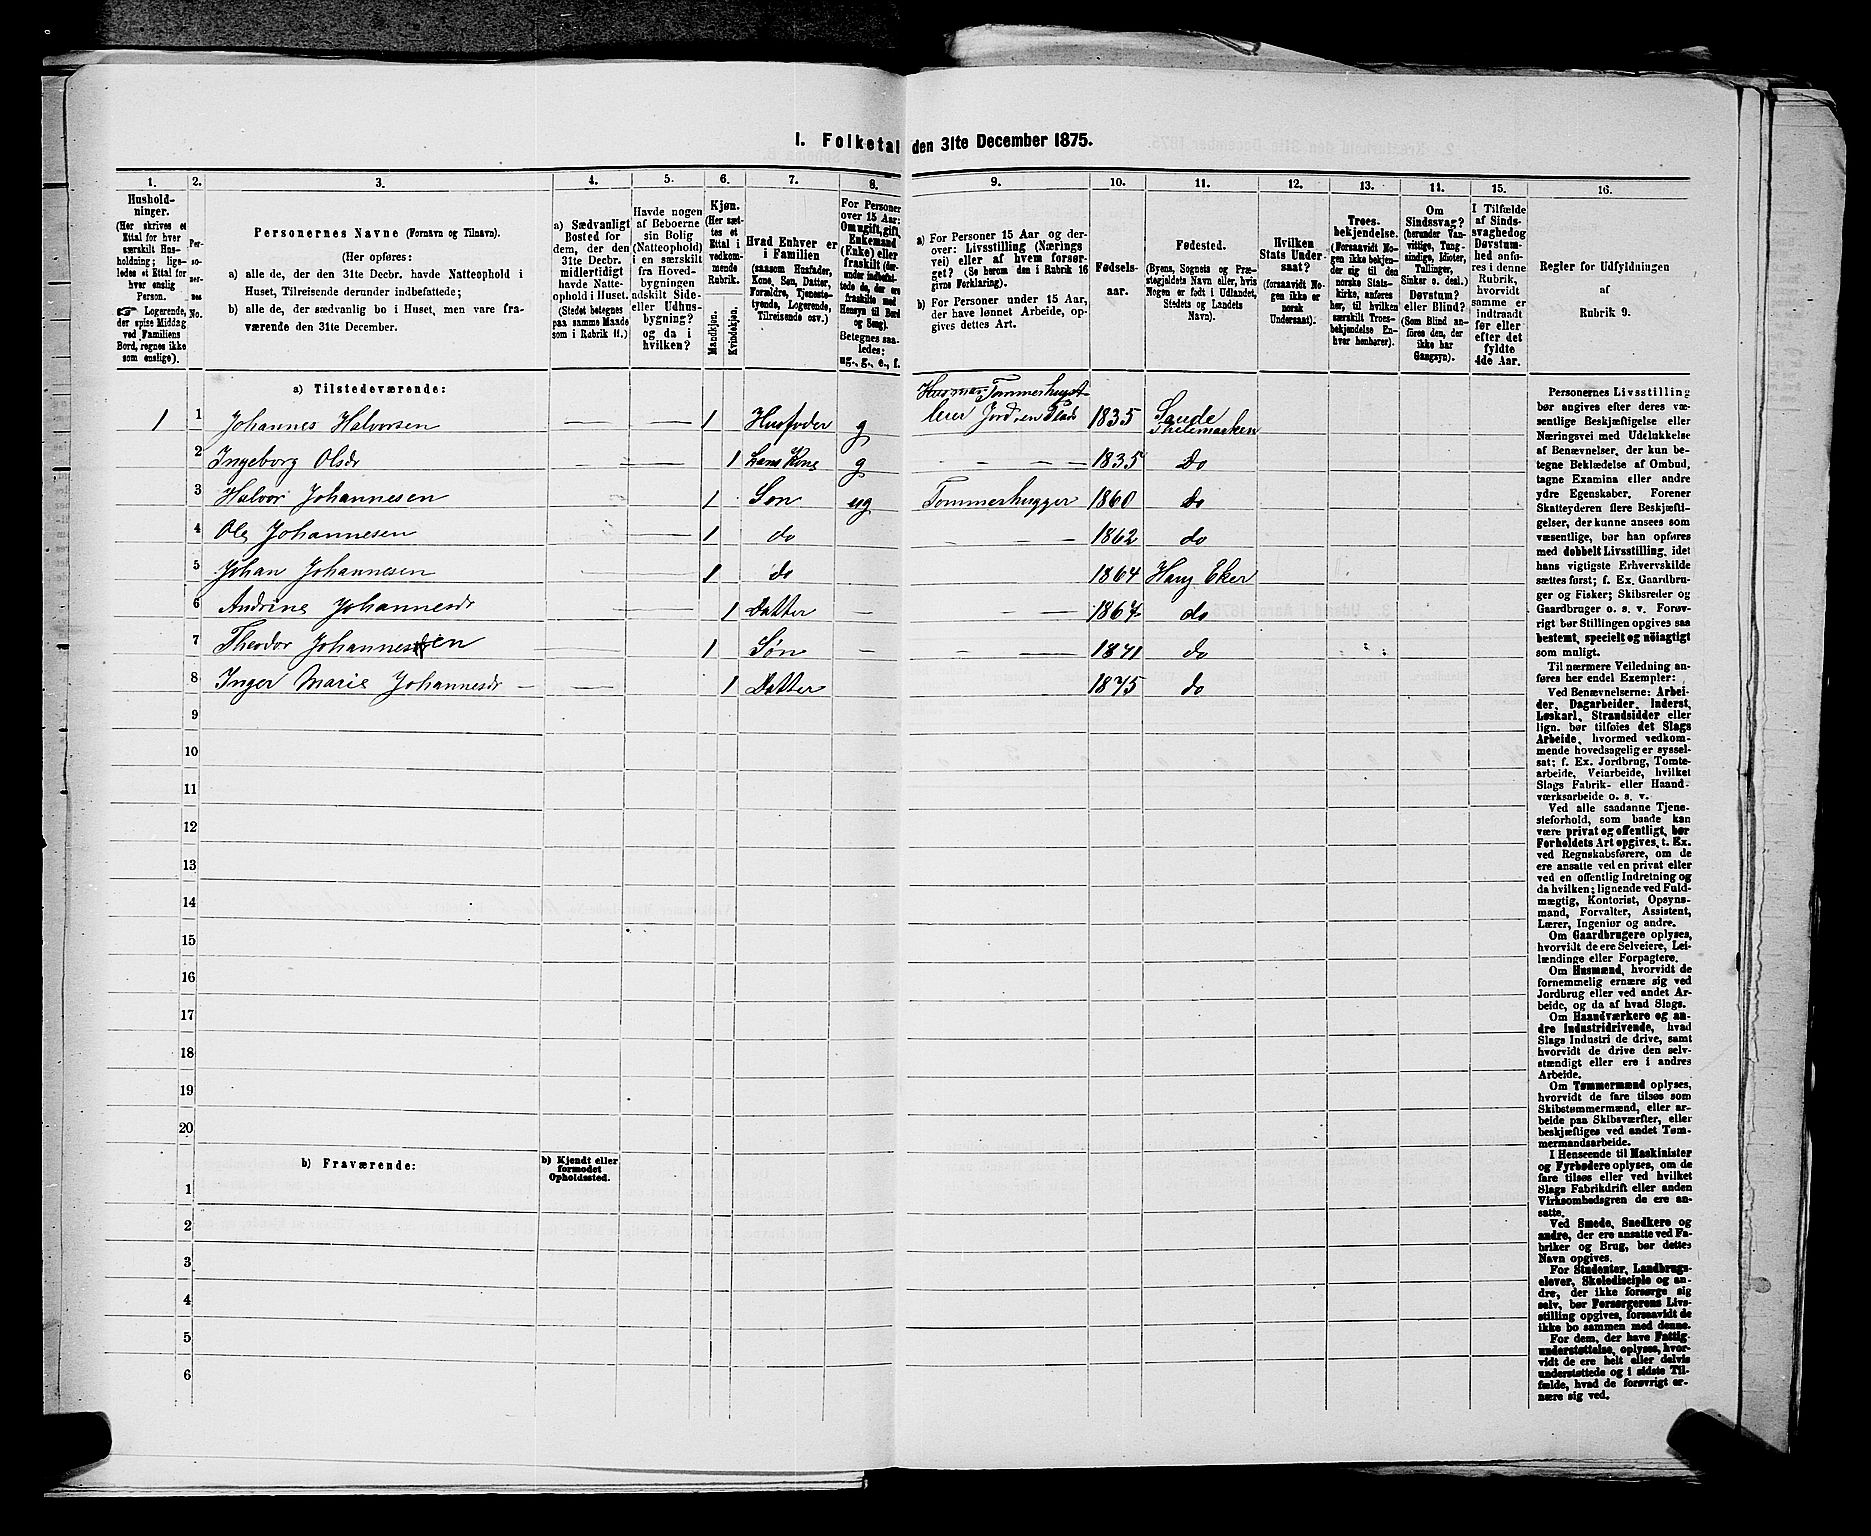 1. Folketal den 31te December 1875.
1.
Hushold-
ninger.
(Her skrives et
Ettal for hver
særskilt Hus-
holdning; lige-
ledes et Ettal for
hver enslig
Person.
Logerende,
der spise Middag
ved Familiens
Bord, regnes ikke
som enslige).
2.
Per-
so-
ner-
nes
No.
3.
Personernes Navne (Fornavn og Tilnavn).
(Her opføres:
a) alle de, der den 31te Decbr. havde Natteophold i
Huset, Tilreisende derunder indbefattede;
b) alle de, der sædvanlig bo i Huset, men vare fra-
værende den 31te December.
4.
a) Sædvanligt
Bosted for
dem, der den
31te Decbr.
midlertidigt
havde Natte-
ophold i Huset.
(Stedet betegnes
paa samme Maade
som i Rubrik 11.)
5.
Havde nogen
af Beboerne
sin Bolig
(Natteophold)
i en særskilt
fra Hoved-
bygningen
adskilt Side-
eller Udhus-
bygning?
og da i
hvilken?
6.
Kjøn.
(Her sæt-
tes et
Ettal i
vedkom-
mende
Rubrik.
Mandkjøn.
Kvindekjøn.
7.
Hvad Enhver er
i Familien
(saasom Husfader,
Kone, Søn, Datter,
Forældre, Tjeneste-
tyende, Logerende,
Tilreisende osv.)
8.
For Personer
over 15 Aar:
Om ugift, gift,
Enkemand
(Enke) eller
fraskilt (der-
under indbefat-
tede de, der ere
fraskilte med
Hensyn til Bord
og Seng).
Betegnes saa-
ledes:
ug., g., e., f.
9.
a) For Personer 15 Aar og der-
over: Livsstilling (Nærings
vei) eller af hvem forsør-
get? (Se herom den i Rubrik 16
givne Forklaring).
b) For Personer under 15 Aar,
der have lønnet Arbeide, op-
gives dettes Art.
10.
Fødsels-
aar.
11.
Fødested.
(Byens, Sognets og Præ-
stegjeldets Navn eller, hvis
Nogen er født i Udlandet,
Stedets og Landets
Navn).
12.
Hvilken
Stats Under-
saat?
(forsaavidt No-
gen ikke er
norsk
Undersaat).
13.
Troes-
bekjendelse.
(Forsaavidt No-
gen ikke bekjen-
der sig til den
norske Stats-
kirke, anføres
her, til hvilken
særskilt Troes-
bekjendelse En-
hver henhører).
14.
Om
Sindssvag?
(herunder Van-
vittige, Tung-
sindige, Idioter,
Tullinger,
Sinker o. desl.)
Døvstum?
eller Blind?
(Som Blind an-
føres den, der
ikke har
Gangsyn).
15.
I Tilfælde
af Sinds-
svaghed og
Døvstum-
hed anfø-
res i denne
Rubrik,
hvorvidt
samme er
indtraadt
før eller
efter det
fyldte
4de Aar.
16.
Regler for Udfyldningen
af
Rubrik 9.
a) Tilstedeværende:
Husman Tømmerhugst
1 1 Johannes Halvorsen — — 1 Husfader g leier Jord en Plads 1835 Saude Thelemarken
2 Ingeborg Olsdr — — 1 hans Kone g — — 1835 do
3 Halvor Johannesen — — 1 Søn ug Tømmerhugger 1860 do
4 Ole Johannesen — — 1 do — — — 1862 do
5 Johan Johannesen — — 1 do — — — 1864 Haug Eker
6 Andrine Johannesdr — — 1 Datter — — — 1867 do
7 Theodor Johannessen — — 1 Søn — — — 1871 do
8 Inger Marie Johannesdr — — 1 Datter — — 1875 do
9
10
11
12
13
14
15
16
17
18
19
20
b) Fraværende:
b) Kjendt eller
formodet
Opholdssted.
1
2
3
4
5
6
Personernes Livsstilling
bør angives efter deres væ-
sentlige Beskjæftigelse eller
Næringsvei med Udelukkelse
af Benævnelser, der kun be-
tegne Beklædelse af Ombud,
tagne Examina eller andre
ydre Egenskaber. Forener
Skatteyderen flere Beskjæfti-
gelser, der kunne ansees som
væsentlige, bør han opføres
med dobbelt Livsstilling, idet
hans vigtigste Erhvervskilde
sættes først; f. Ex. Gaardbru-
ger og Fisker; Skibsreder og
Gaardbruger o. s. v. Forøv-
rigt bør Stillingen opgives saa
bestemt, specielt og nøiagtigt
som muligt.
Til nærmere Veiledning an-
føres her endel Exempler:
Ved Benævnelserne: Arbei-
der, Dagarbeider, Inderst,
Løskarl, Strandsidder eller
lign. bør tilføies det Slags
Arbeide, hvormed vedkom-
mende hovedsagelig er syssel-
sat; f. Ex. Jordbrug, Tomte-
arbeide, Veiarbeide, hvilket
Slags Fabrik- eller Haand-
værksarbeide o. s. v.
Ved alle saadanne Tjene-
steforhold, som baade kan
være privat og offentligt, bør
Forholdets Art opgives, t. Ex.
ved Regnskabsførere, om de
ere ansatte ved en privat eller
ved en offentlig Indretning og
da hvilken; lignende ved Fuld-
mægtig, Kontorist, Opsyns-
mand, Forvalter, Assistent,
Lærer, Ingeniør og andre.
Om Gaardbrugere oplyses,
hvorvidt de ere Selveiere, Lei-
lændinge eller Forpagtere.
Om Husmænd, hvorvidt de
fornemmelig ernære sig ved
Jordbrug eller ved andet Ar-
beide, og da af hvad Slags.
Om Haandværkere og an-
dre Industridrivende, hvad
Slags Industri de drive, samt
hvorvidt de drive den selv-
stændigt eller ere i andres
Arbeide.
Om Tømmermænd oplyses,
hvorvidt de fare tilsøs som
Skibstømmermænd, eller ar-
beide paa Skibsværfter, eller
beskjæftiges ved andet Tøm-
mermandsarbeide.
I Henseende til Maskinister
og Fyrbødere oplyses, om de
fare tilsøs eller ved hvilket
Slags Fabrikdrift eller anden
Virksomhedsgren de ere an-
satte.
Ved Smede, Snedkere og
andre, der ere ansatte ved Fa-
briker og Brug, bør dettes
Navn opgives.
For Studenter, Landbrugs-
elever, Skoledisciple og an-
dre, der ikke forsørge sig
selv, bør Forsørgerens Livs-
stilling opgives, forsaavidt de
ikke bo sammen med denne.
For dem, der have Fattig-
understøttelse, oplyses, hvor-
vidt de ere helt eller delvis
understøttede og i sidste Til-
fælde, hvad de forøvrigt er-
nære sig ved.